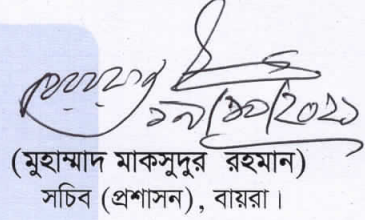 ১৯/১০/২০২১
(মুহাম্মাদ মাকসুদুর রহমান)
সচিব (প্রশাসন), বায়রা।